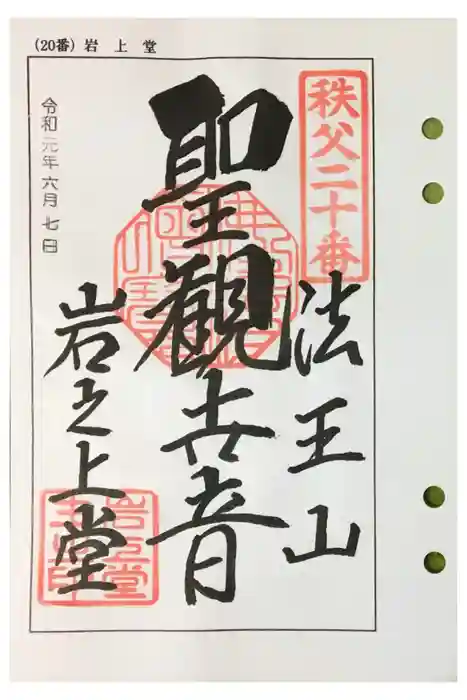 (20番) 岩上堂
秩父二十番
法王山
聖観世音
岩之上堂
令和元年六月七日